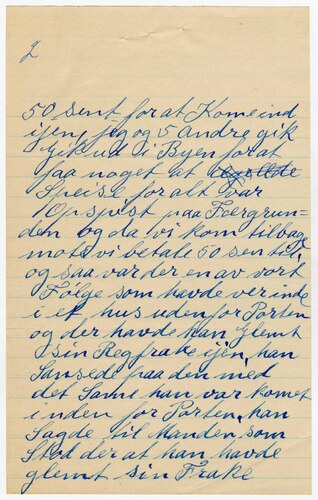 2
50 sent for at Kome ind
ijen, jeg og 5 Andre gik
Gik ud i Byen for at
faa noget at
Speise, for alt var
Opspist paa Færgrun-
den og da vi kom tilbage
mote vi betale 50 sen til,
og saa var der en av vort
Følge som havde ver inde
i et hus uden for Porten
og der havde han Glemt
sin Regfrake ijen, han
Sansede paa den med
det Same han var komet
inden for Porten, han
Sagde til Manden, som
Stod der at han havde
glemt sin Frake